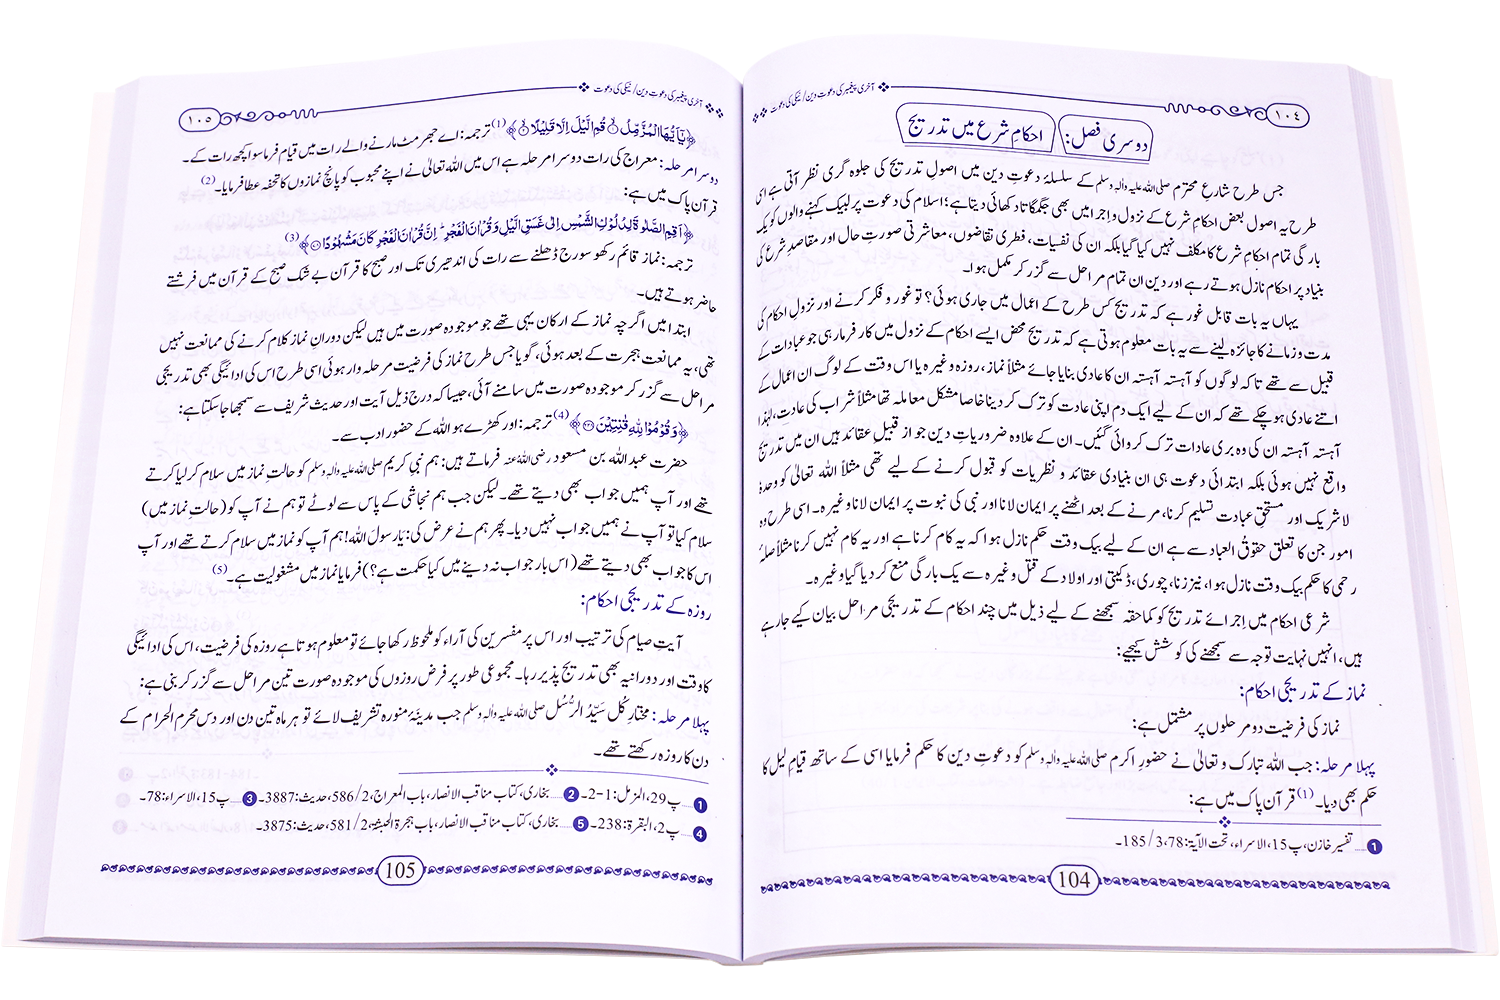 آخری پیغمبر کی دعوتِ دین/نیکی کی دعوت
١٠٤
دوسری فصل: احکامِ شرع میں تدریج
جس طرح شارعِ محترم صلی اللہ علیہ واٰلہٖ وسلم کے سلسلۂ دعوتِ دین میں اصولِ تدریج کی جلوہ گری نظر آتی ہے اسی
طرح یہ اصول بعض احکامِ شرع کے نزول و اِجرا میں بھی جگمگاتا دکھائی دیتا ہے؛ اسلام کی دعوت پر لبیک کہنے والوں کو یک
بارگی تمام احکامِ شرع کا مکلف نہیں کیا گیا بلکہ ان کی نفسیات، فطری تقاضوں، معاشرتی صورتِ حال اور مقاصدِ شرع کی
بنیاد پر احکام نازل ہوتے رہے اور دین ان تمام مراحل سے گزر کر مکمل ہوا۔
یہاں یہ بات قابلِ غور ہے کہ تدریج کس طرح کے اعمال میں جاری ہوئی؟ تو غور و فکر کرنے اور نزولِ احکام کی
مدت و زمانے کا جائزہ لینے سے یہ بات معلوم ہوتی ہے کہ تدریج محض ایسے احکام کے نزول میں کار فرما رہی جو عبادات کے
قبیل سے تھے تاکہ لوگوں کو آہستہ آہستہ ان کا عادی بنایا جائے مثلاً نماز، روزہ وغیرہ یا اس وقت کے لوگ ان اعمال کے
اتنے عادی ہو چکے تھے کہ ان کے لیے ایک دم اپنی عادت کو ترک کر دینا خاصا مشکل معاملہ تھا مثلاً شراب کی عادت، لہٰذا
آہستہ آہستہ ان کی وہ بری عادات ترک کروائی گئیں۔ ان کے علاوہ ضروریاتِ دین جو از قبیلِ عقائد ہیں ان میں تدریج
واقع نہیں ہوئی بلکہ ابتدائی دعوت ہی ان بنیادی عقائد و نظریات کو قبول کرنے کے لیے تھی مثلاً اللہ تعالیٰ کو وحدہٗ
لاشریک اور مستحقِ عبادت تسلیم کرنا، مرنے کے بعد اٹھنے پر ایمان لانا اور نبی کی نبوت پر ایمان لانا وغیرہ۔ اسی طرح وہ
امور جن کا تعلق حقوقُ العباد سے ہے ان کے لیے بیک وقت حکم نازل ہوا کہ یہ کام کرنا ہے اور یہ کام نہیں کرنا مثلاً صلۂ
رحمی کا حکم بیک وقت نازل ہوا، نیز زنا، چوری، ڈکیتی اور اولاد کے قتل وغیرہ سے یک بارگی منع کر دیا گیا وغیرہ۔
شرعی احکام میں اِجرائے تدریج کو کماحقہ سمجھنے کے لیے ذیل میں چند احکام کے تدریجی مراحل بیان کیے جا رہے
ہیں، انہیں نہایت توجہ سے سمجھنے کی کوشش کیجیے:
نماز کے تدریجی احکام:
نماز کی فرضیت دو مرحلوں پر مشتمل ہے:
پہلا مرحلہ: جب اللہ تبارک و تعالیٰ نے حضورِ اکرم صلی اللہ علیہ واٰلہٖ وسلم کو دعوتِ دین کا حکم فرمایا اسی کے ساتھ قیامِ لیل کا
حکم بھی دیا۔(1) قرآنِ پاک میں ہے:
1 ....تفسیر خازن، پ15، الاسراء، تحت الآیۃ: 78، 3/185۔
104
آخری پیغمبر کی دعوتِ دین/نیکی کی دعوت
١٠٥
﴿یٰۤاَیُّهَا الْمُزَّمِّلُۙ۝ قُمِ الَّیْلَ اِلَّا قَلِیْلًاۙ۝﴾(1) ترجمہ: اے جھرمٹ مارنے والے رات میں قیام فرما سوا کچھ رات کے۔
دوسرا مرحلہ: معراج کی رات دوسرا مرحلہ ہے اس میں اللہ تعالیٰ نے اپنے محبوب کو پانچ نمازوں کا تحفہ عطا فرمایا۔(2)
قرآنِ پاک میں ہے:
﴿اَقِمِ الصَّلٰوةَ لِدُلُوْكِ الشَّمْسِ اِلٰى غَسَقِ الَّیْلِ وَ قُرْاٰنَ الْفَجْرِؕ اِنَّ قُرْاٰنَ الْفَجْرِ كَانَ مَشْهُوْدًا۝﴾(3)
ترجمہ: نماز قائم رکھو سورج ڈھلنے سے رات کی اندھیری تک اور صبح کا قرآن بے شک صبح کے قرآن میں فرشتے
حاضر ہوتے ہیں۔
ابتدا میں اگرچہ نماز کے ارکان یہی تھے جو موجودہ صورت میں ہیں لیکن دورانِ نماز کلام کرنے کی ممانعت نہیں
تھی، یہ ممانعت ہجرت کے بعد ہوئی، گویا جس طرح نماز کی فرضیت مرحلہ وار ہوئی اسی طرح اس کی ادائیگی بھی تدریجی
مراحل سے گزر کر موجودہ صورت میں سامنے آئی، جیسا کہ درج ذیل آیت اور حدیث شریف سے سمجھا جا سکتا ہے:
﴿وَ قُوْمُوْا لِلّٰهِ قٰنِتِیْنَ۝﴾(4) ترجمہ: اور کھڑے ہو اللہ کے حضور ادب سے۔
حضرت عبد اللہ بن مسعود رضی اللہ عنہ فرماتے ہیں: ہم نبیِ کریم صلی اللہ علیہ واٰلہٖ وسلم کو حالتِ نماز میں سلام کر لیا کرتے
تھے اور آپ ہمیں جواب بھی دیتے تھے۔ لیکن جب ہم نجاشی کے پاس سے لوٹے تو ہم نے آپ کو (حالتِ نماز میں)
سلام کیا تو آپ نے ہمیں جواب نہیں دیا۔ پھر ہم نے عرض کی: یارسولَ اللہ! ہم آپ کو نماز میں سلام کرتے تھے اور آپ
اس کا جواب بھی دیتے تھے (اس بار جواب نہ دینے میں کیا حکمت ہے؟) فرمایا نماز میں مشغولیت ہے۔(5)
روزہ کے تدریجی احکام:
آیتِ صیام کی ترتیب اور اس پر مفسرین کی آراء کو ملحوظ رکھا جائے تو معلوم ہوتا ہے روزہ کی فرضیت، اس کی ادائیگی
کا وقت اور دورانیہ بھی تدریج پذیر رہا۔ مجموعی طور پر فرض روزوں کی موجودہ صورت تین مراحل سے گزر کر بنی ہے:
پہلا مرحلہ: مختارِ کُل سیّدُ الرُّسُل صلی اللہ علیہ واٰلہٖ وسلم جب مدینۂ منورہ تشریف لائے تو ہر ماہ تین دن اور دس محرم الحرام کے
دن کا روزہ رکھتے تھے۔
1 ....پ29، المزمل: 1-2۔ 2 ....بخاری، کتاب مناقب الانصار، باب المعراج، 2/586، حدیث: 3887۔ 3 ....پ15، الاسراء: 78۔
4 ....پ2، البقرۃ: 238۔ 5 ....بخاری، کتاب مناقب الانصار، باب ہجرۃ الحبشۃ، 2/581، حدیث: 3875۔
105